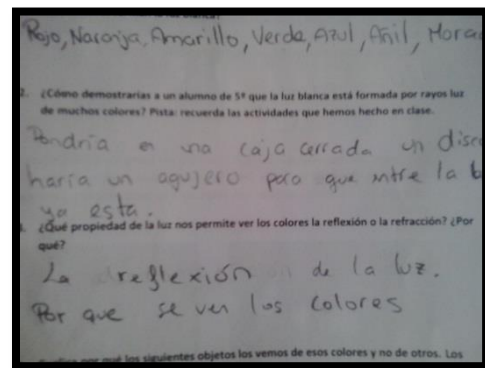 Rojo, Naranja, Amarillo, Verde, Azul, Añil, Mora
2. ¿Cómo demostrarías a un alumno de 5º que la luz blanca está formada por rayos luz
de muchos colores? Pista: recuerda las actividades que hemos hecho en clase.
Pondría en una caja cerrada un disc
haría un agujero para que entre la
ya esta.
¿Qué propiedad de la luz nos permite ver los colores la reflexión o la refracción? ¿Por
qué?
La reflexión de la luz.
Por que se ven los colores
por qué los siguientes objetos los vemos de esos colores y no de otros. Los